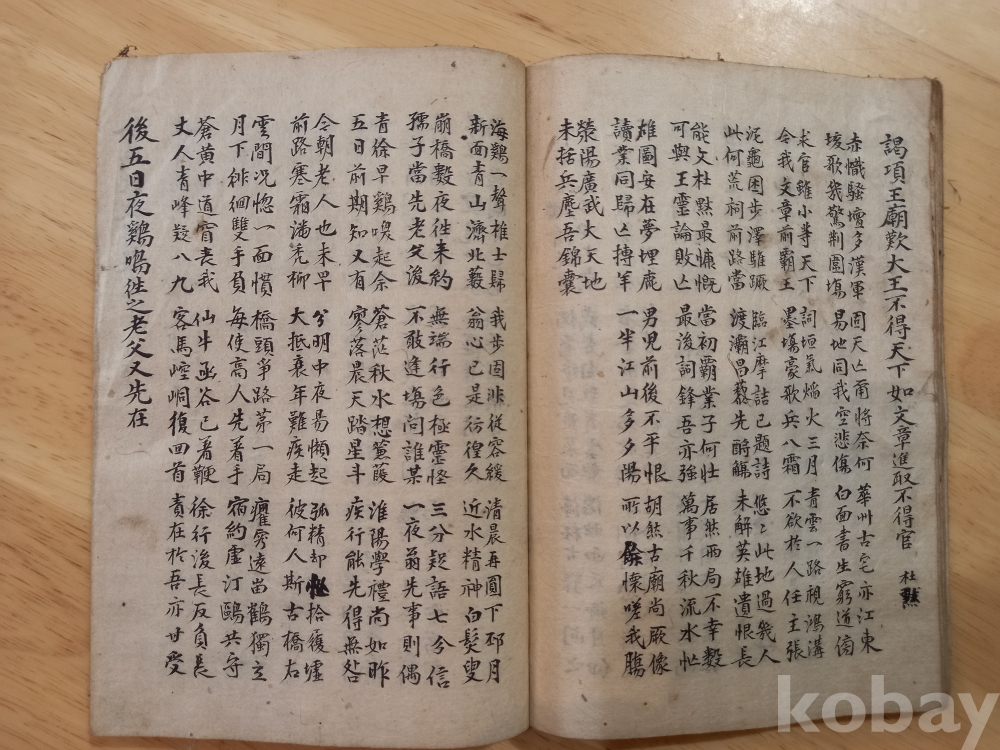 謁項王廟歎大王不得天下如文章進取不得官 杜黙
赤幟騷壇多漢軍 困天亾甭將奈何 華州古宅亦江東
垓歌我驚荆圍塲 易地同我空悲傷 白面書生窮道傍
求官雖小等天下 詞垣氣焰火三月 青雲一路視鴻溝
令我文章前霸王 墨塲豪歌兵八霜 不欲於人任主張
泥龜困步澤騅蹶 臨江摩詰已題詩 悠〻此地過幾人
此何荒祠前路當 渡灞昌藜先酹觴 未解英雄遺恨長
能文杜黙最慷慨 當初霸業子何壮 居然兩局不幸數
可與王靈論敗亾 最後詞鋒吾亦強 萬事千秋流水忙
雄圖安在夢埋鹿 男児前後不平恨 胡然古廟尚厥像
讀業同歸亾摶羊 一半江山多夕陽 所以餘懷嗟我膓
滎陽廣武大天地
未括兵塵吾錦囊
海鷄一聲椎士歸 我步固非従容緩 清晨再圓下邳月
新面青山濟北藪 翁心已是彷徨久 近水精神白髮叟
崩橋數夜徃来約 無端行色極靈怪 三分疑語七分信
孺子當先老父後 不敢逢塲問誰某 一夜翁先事則偶
青徐早鷄喚起余 蒼茫秋水想蒹葭 淮陽學禮尚如昨
五日前期知又有 寥落晨天踏星斗 疾行能先得無咎
今朝老人也未早 分明中夜易懶起 弧精却怪拾履墟
前路寒霜滿禿柳 大抵衰年難疾走 彼何人斯古橋右
雲間况惚一面慣 橋頭爭路第一局 癯容遠峀鶴獨立
月下徘徊雙手負 每使高人先着手 宿約虚汀鷗共守
蒼黄中道胥衰我 仙牛函谷已着鞭 徐行後長反負長
丈人青峰疑八九 客馬崆峒復回首 責在於吾亦甘受
後五日夜鷄鳴徃之老父又先在
kobay